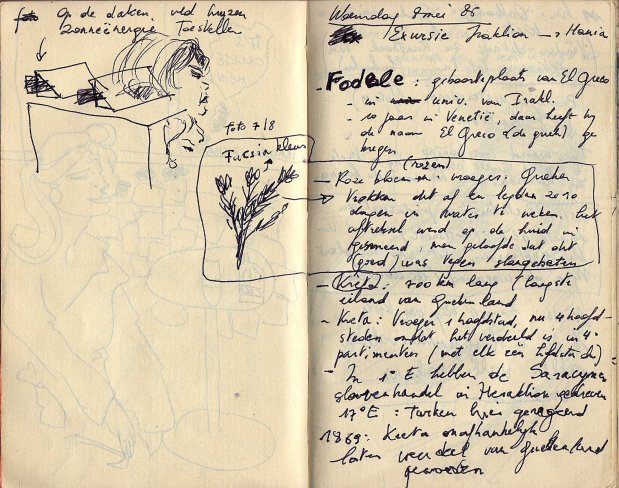 foto Op de daken ved huizen
zonneënergie Toestellen
foto 7/8
Fucsia kleur
Woensdag 8 mei 85
Exkursie Iraklion → Hania
- Fodele : geboorteplaats van El Greco
- in univ. van Irakl.
- 10 jaar in Venetië, daar heeft hij
de naam El Greco (de griek) ge
kregen
(rozen)
- Roze bloemen : vroeger : Grieken
trokken dit af en lieten 20 30
dagen in water te weken. het
aftreksel werd op de huid in
gesmeerd, men geloofde dat dit
(goed) was tegen slangebeten
- Kreta : 700 km lang (langste
eiland van Griekenland
- Kreta : Vroeger 1 hoofdstad, nu 4 hoofd-
steden omdat het verdeeld is in 4
partimenten (met elk één hfdstad)
- In 1° E hebben de Saracenen
slavenhandel in Heraklion gedreven
17° E : Turken hier geregeerd
1869 : Kreta onafhankelijk
later weer deel van Griekenland
geworden